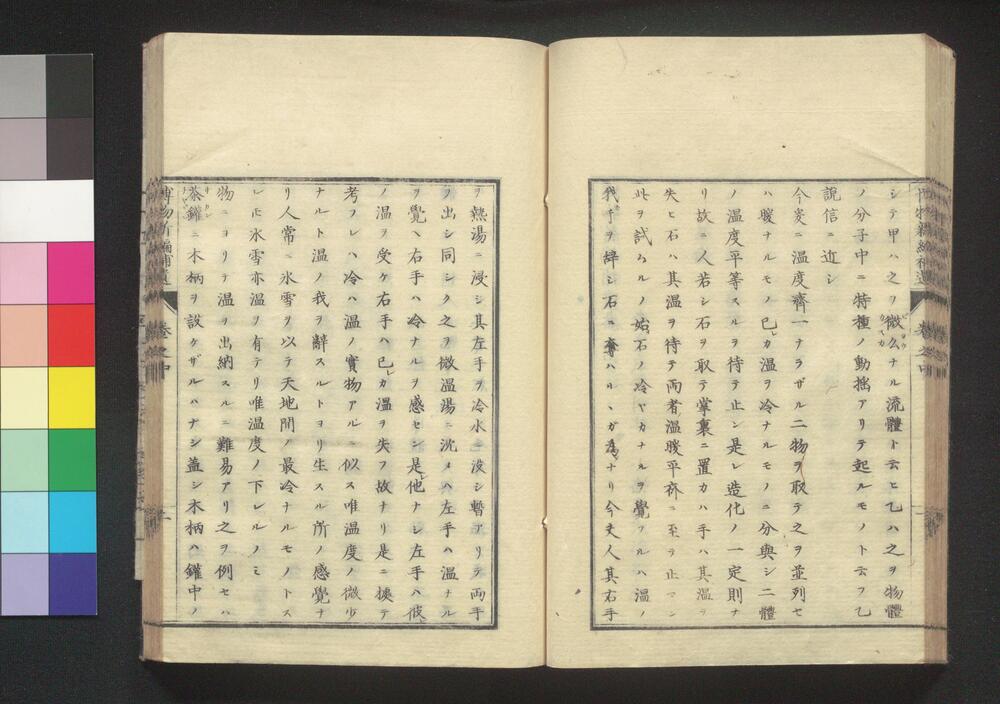 シテ甲ハ之ヲ微么ナル流體ト云ヒ乙ハ之ヲ物體
ノ分子中ニ特種ノ動揺アリテ起ルモノト云フ乙
説信ニ近シ
今爰ニ温度齊一ナラザル二物ヲ取テ之ヲ並列セ
ハ暖ナルモノ己レカ温ヲ冷ナルモノニ分與シ二體
ノ温度平等スルヲ待テ止ン是レ造化ノ一定則ナ
リ故ニ人若シ石ヲ取テ掌裏ニ置カハ手ハ其温ヲ
失ヒ石ハ其温ヲ待テ両者温暖平齊ニ至テ止マン
此ヲ試ムルノ始石ノ冷ヤカナルヲ覺フルハ温ノ
我手ヲ辞シ石ニ奪ハルヽガ為ナリ今夫人其右手
ヲ熱湯ニ浸シ其左手ヲ冷水ニ没シ暫アリテ両手
ヲ出シ同シク之ヲ微温湯ニ沈メハ左手ハ温ナル
ヲ覺ヘ右手ハ冷ナルヲ感セン是レ他ナシ左手ハ彼
ノ温ヲ受ケ右手ハ己レカ温ヲ失フ故ナリ是ニ據テ
考フレハ冷ハ温ノ實物アルニ似ス唯温度ノ微少
ナルト温ノ我ヲ辭スルトヨリ生スル所ノ感覺ナ
リ人常ニ氷雪ヲ以テ天地間ノ最冷ナルモノトス
レ𪜈氷雪亦温ヲ有テリ唯温度ノ下レルノミ
物ニヨリテ温ヲ出納スルニ難易アリ之ヲ例セハ
茶鑵ニ木柄ヲ設ケザルハナシ蓋シ木柄ハ鑵中ノ
博物新編補遺
卷之中